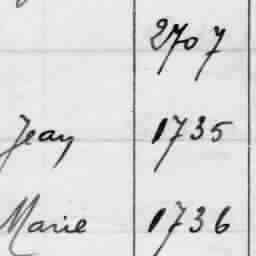 2707
Jean 1735
Marie 1736